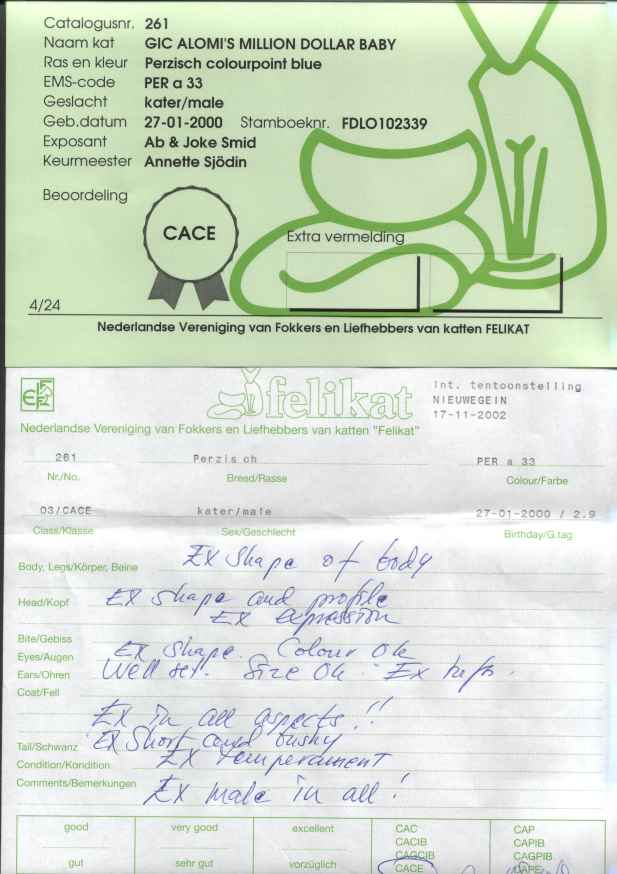 Catalogusnr. 261
Naam kat GIC ALOMI'S MILLION DOLLAR BABY
Ras en kleur Perzisch colourpoint blue
EMS-code PER a 33
Geslacht kater/male
Geb.datum 27-01-2000 Stamboeknr. FDLO102339
Exposant Ab & Joke Smid
Keurmeester Annette Sjödin
Beoordeling
CACE
Extra vermelding
4/24
Nederlandse Vereniging van Fokkers en Liefhebbers van katten FELIKAT
felikat
Int. tentoonstelling
NIEUWEGEIN
17-11-2002
Nederlandse Vereniging van Fokkers en Liefhebbers van katten "Felikat"
261 Perzisch PER a 33
Nr./No. Breed/Rasse Colour/Farbe
03/CACE kater/male 27-01-2000 / 2.9
Class/Klasse Sex/Geschlecht Birthday/G.tag
Body, Legs/Körper, Beine Ex shape of body
Head/Kopf Ex shape and profile
Ex expression
Bite/Gebiss
Eyes/Augen Ex shape. Colour ok
Ears/Ohren Well set. Size ok. Ex
Coat/Fell
Ex in all aspects!!
Tail/Schwanz Ex short and bushy
Condition/Kondition Ex temperament
Comments/Bemerkungen Ex male in all!
good very good excellent CAC CAP
CACIB CAPIB
gut sehr gut vorzüglich CAGCIB CAGPIB
CACE CAPE